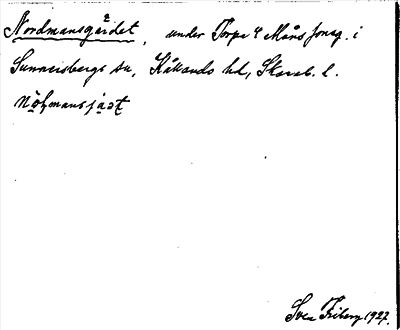 Nordmansgärdet, under Torpa 4 Månsjonsg. i
Sunnersbergs sn, Kållands hd, Skarab. l.
Sven Friberg 1927.